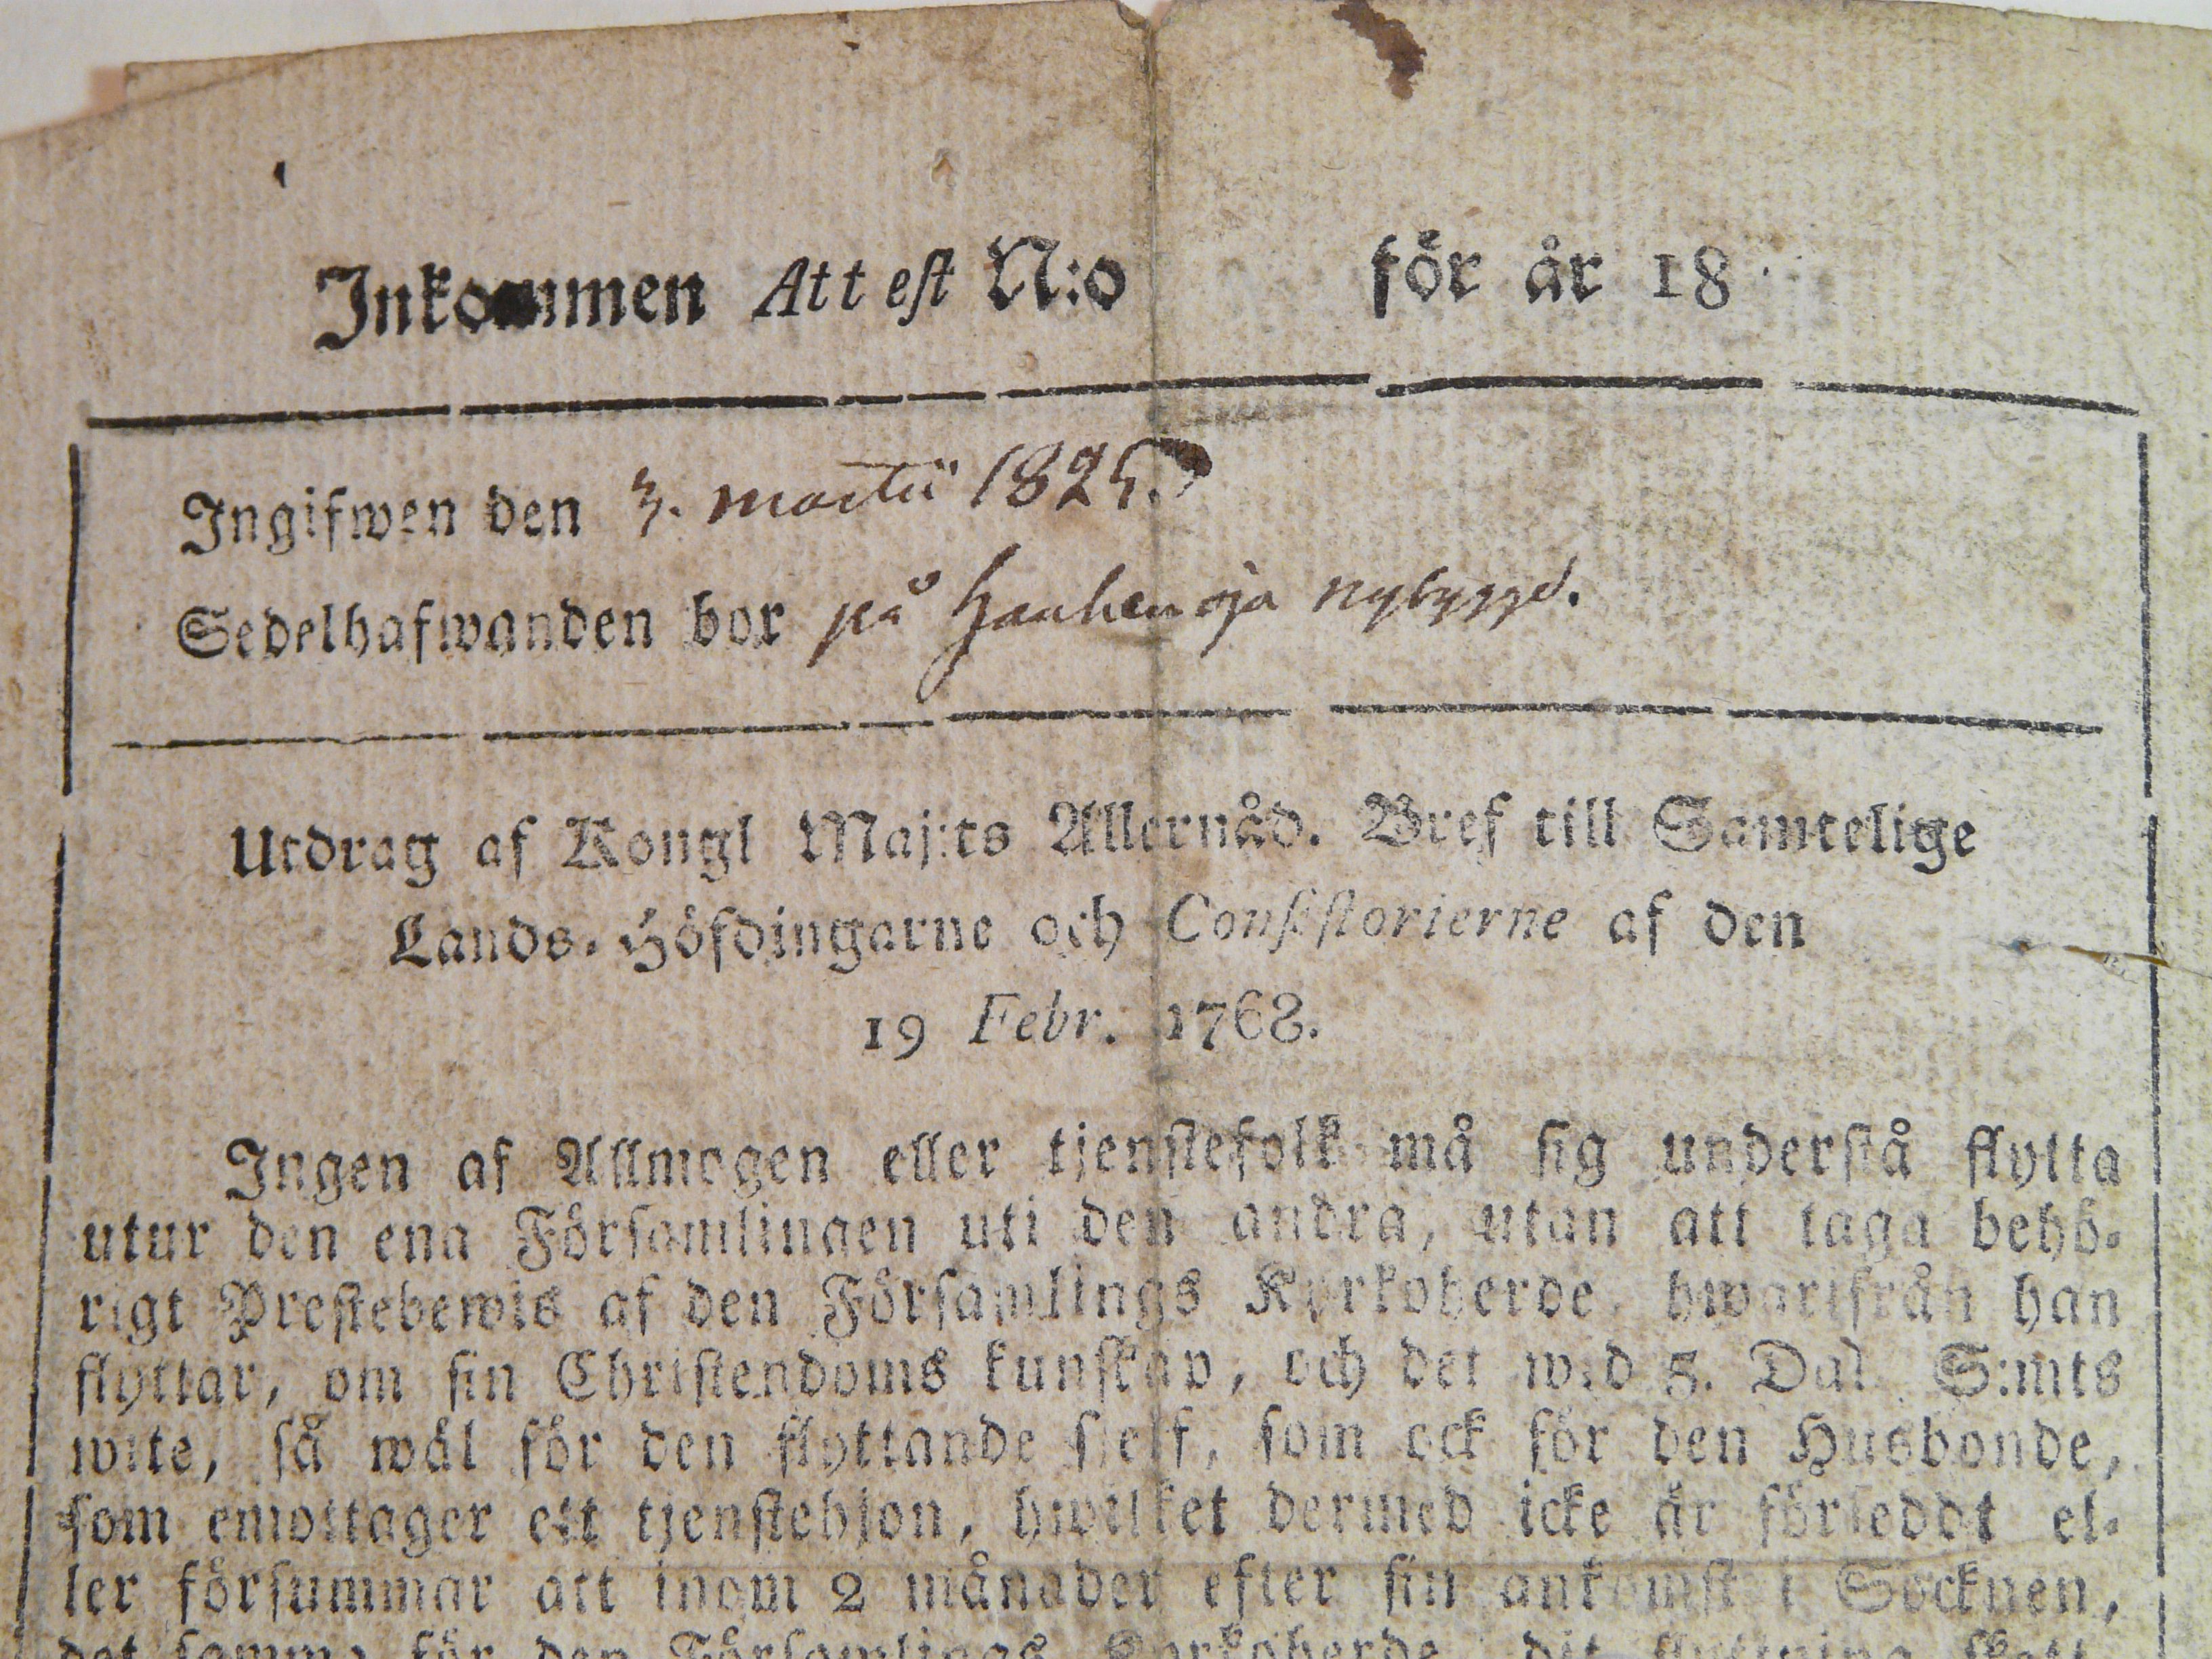 Inkommen Attest N:o för år 18
Ingifwen den 3. martii 1825.
Sedelhafwanden bor på nybygge.
Utdrag af Kongl Maj:ts Allernåd. Bref till Samtelige
Lands-Höfdingarne och Consistorierne af den
19 Febr. 1768.
Ingen af Allmogen eller tjenstefolk må sig understå flytta
utur den ena Församlingen uti den andra, utan att taga behö-
rigt Prestebewis af den Församlings Kyrkoherde, hwarifrån han
flyttar, om sin Christendoms kunskap, och det wid 5. Dal. S:mts
wite, så wäl för den flyttande sjelf, som ock för den Husbonde,
som emottager ett tjenstehjon, hwilket dermed icke är förseddt el-
ler försummar att inom 2 månader efter sin ankomst i Socknen,
det samma för den Församlings Kyrkoherde, dit flyttning skett